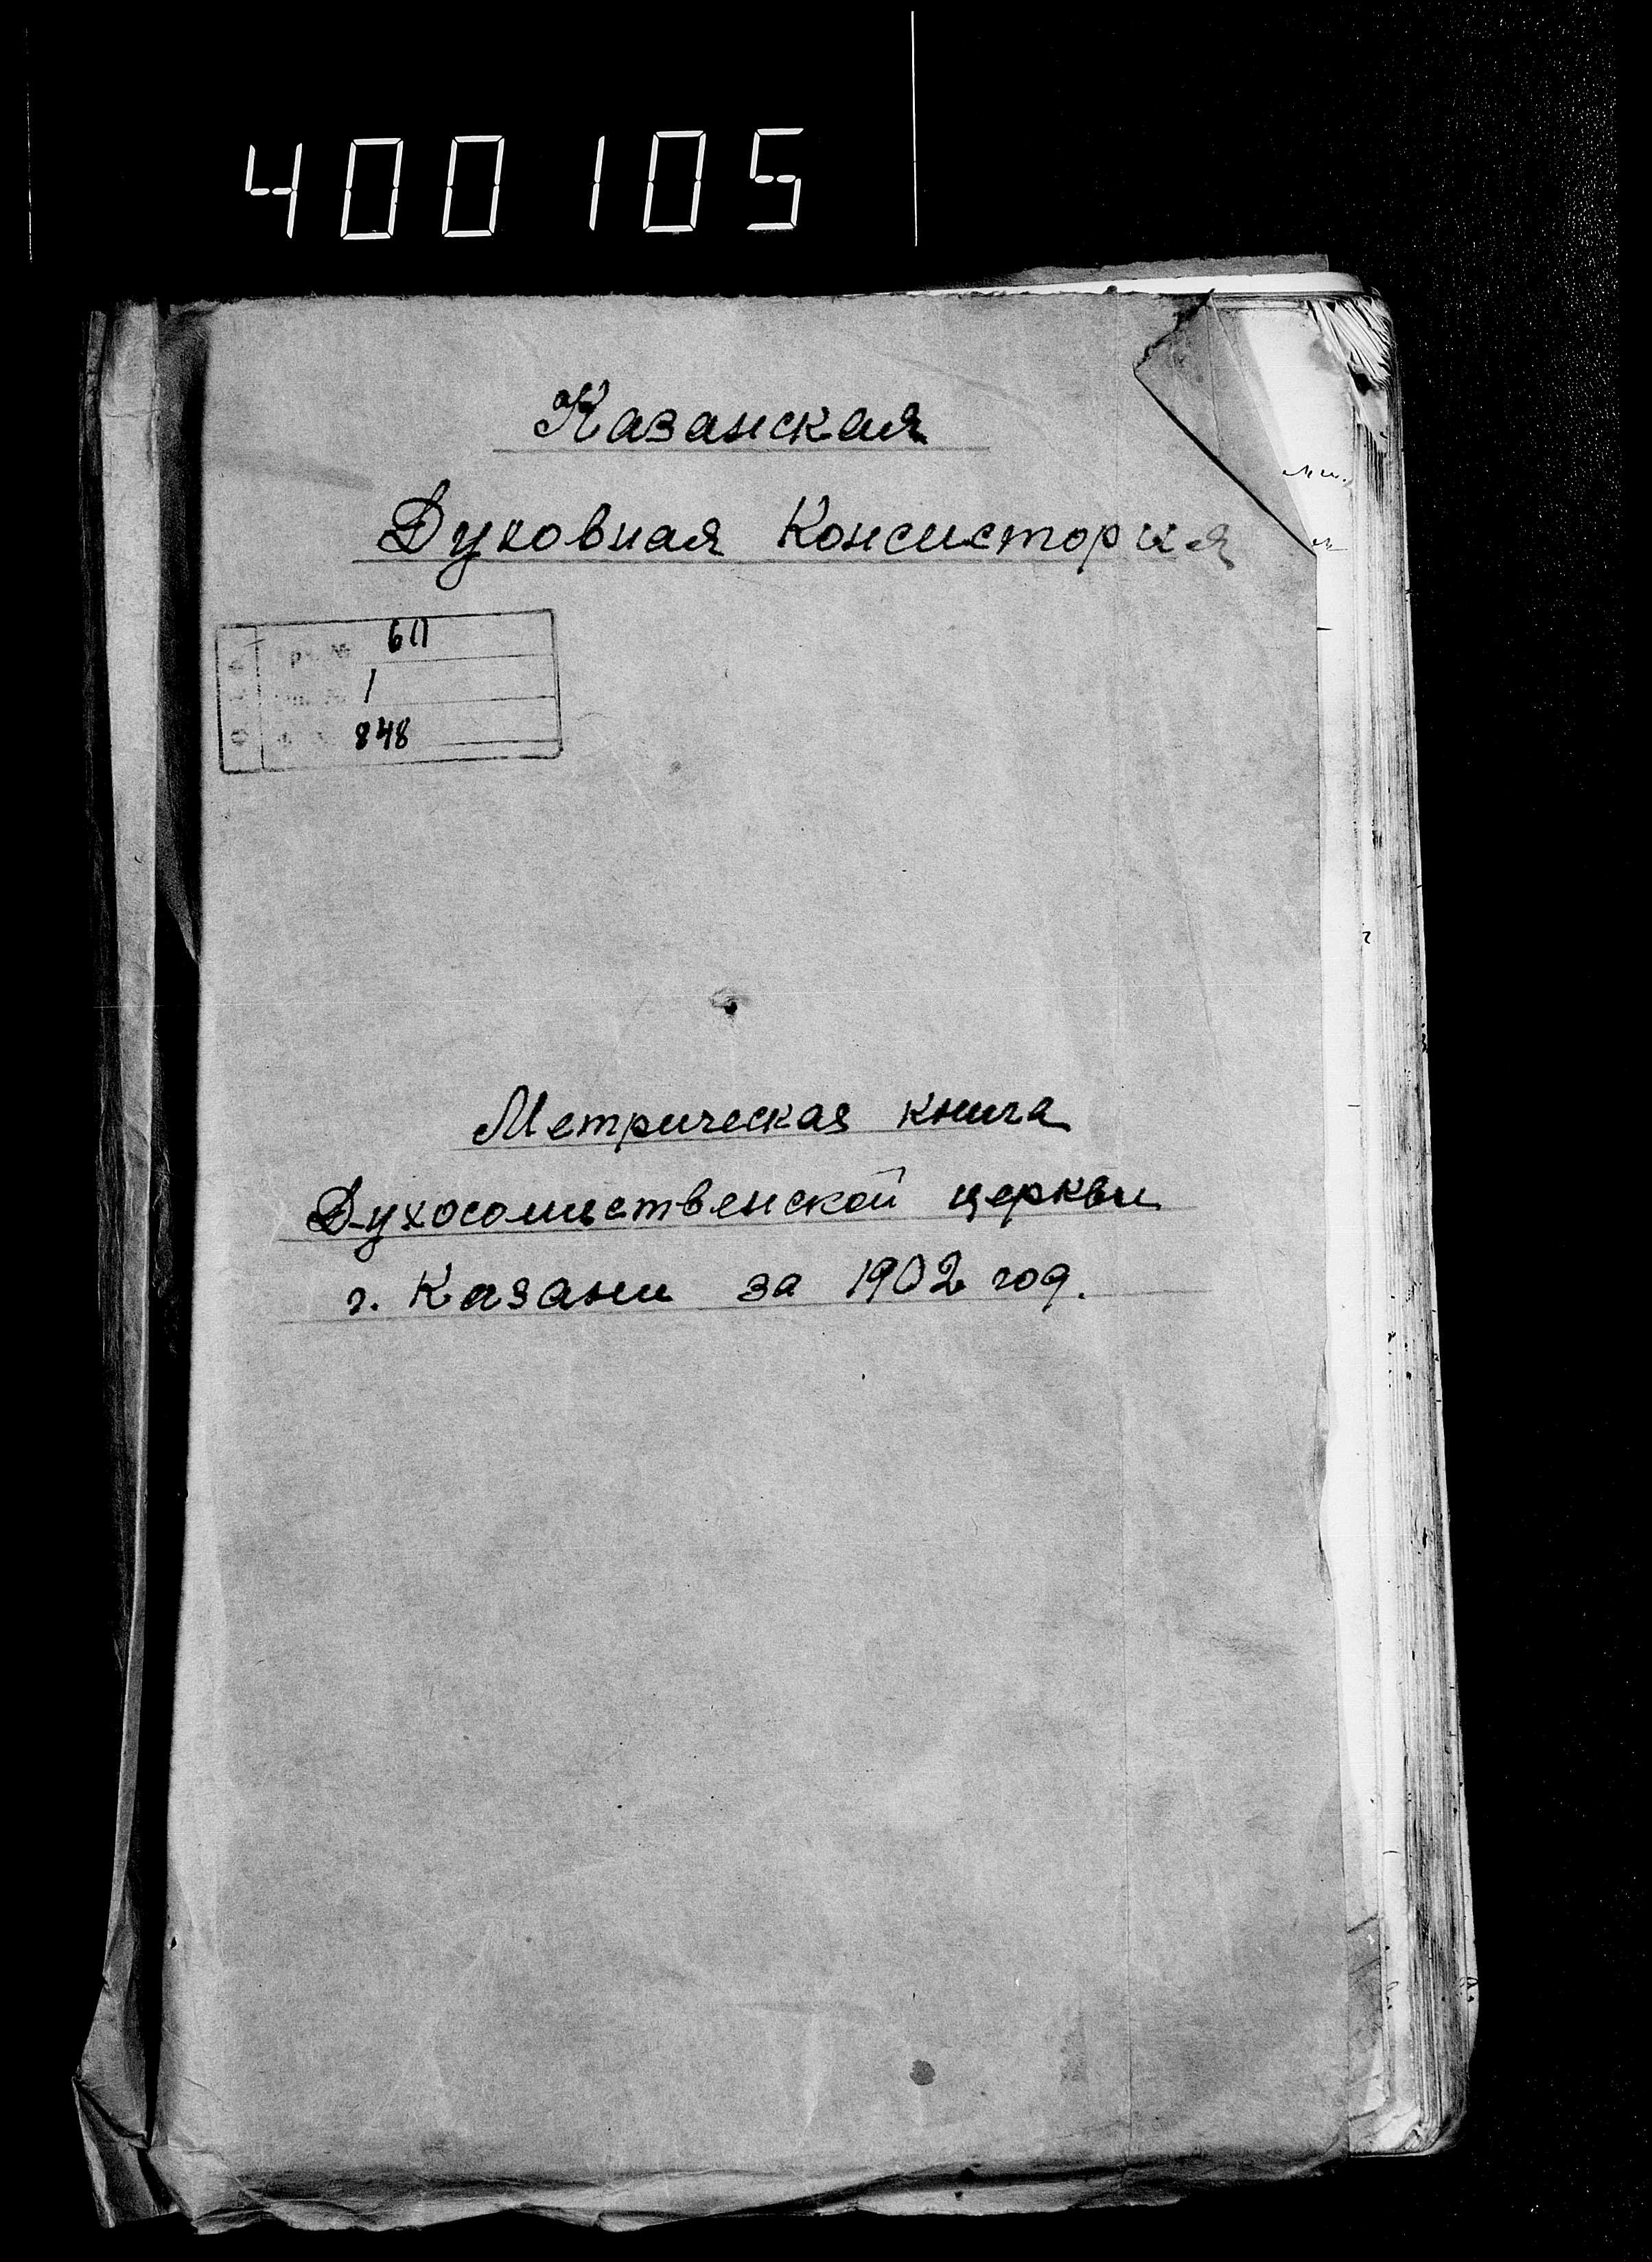 400105
Казанская
Духовная Консистория
611
1
848
Метрическая книга
Духосошественской церкви
г. Казани за 1902 год.